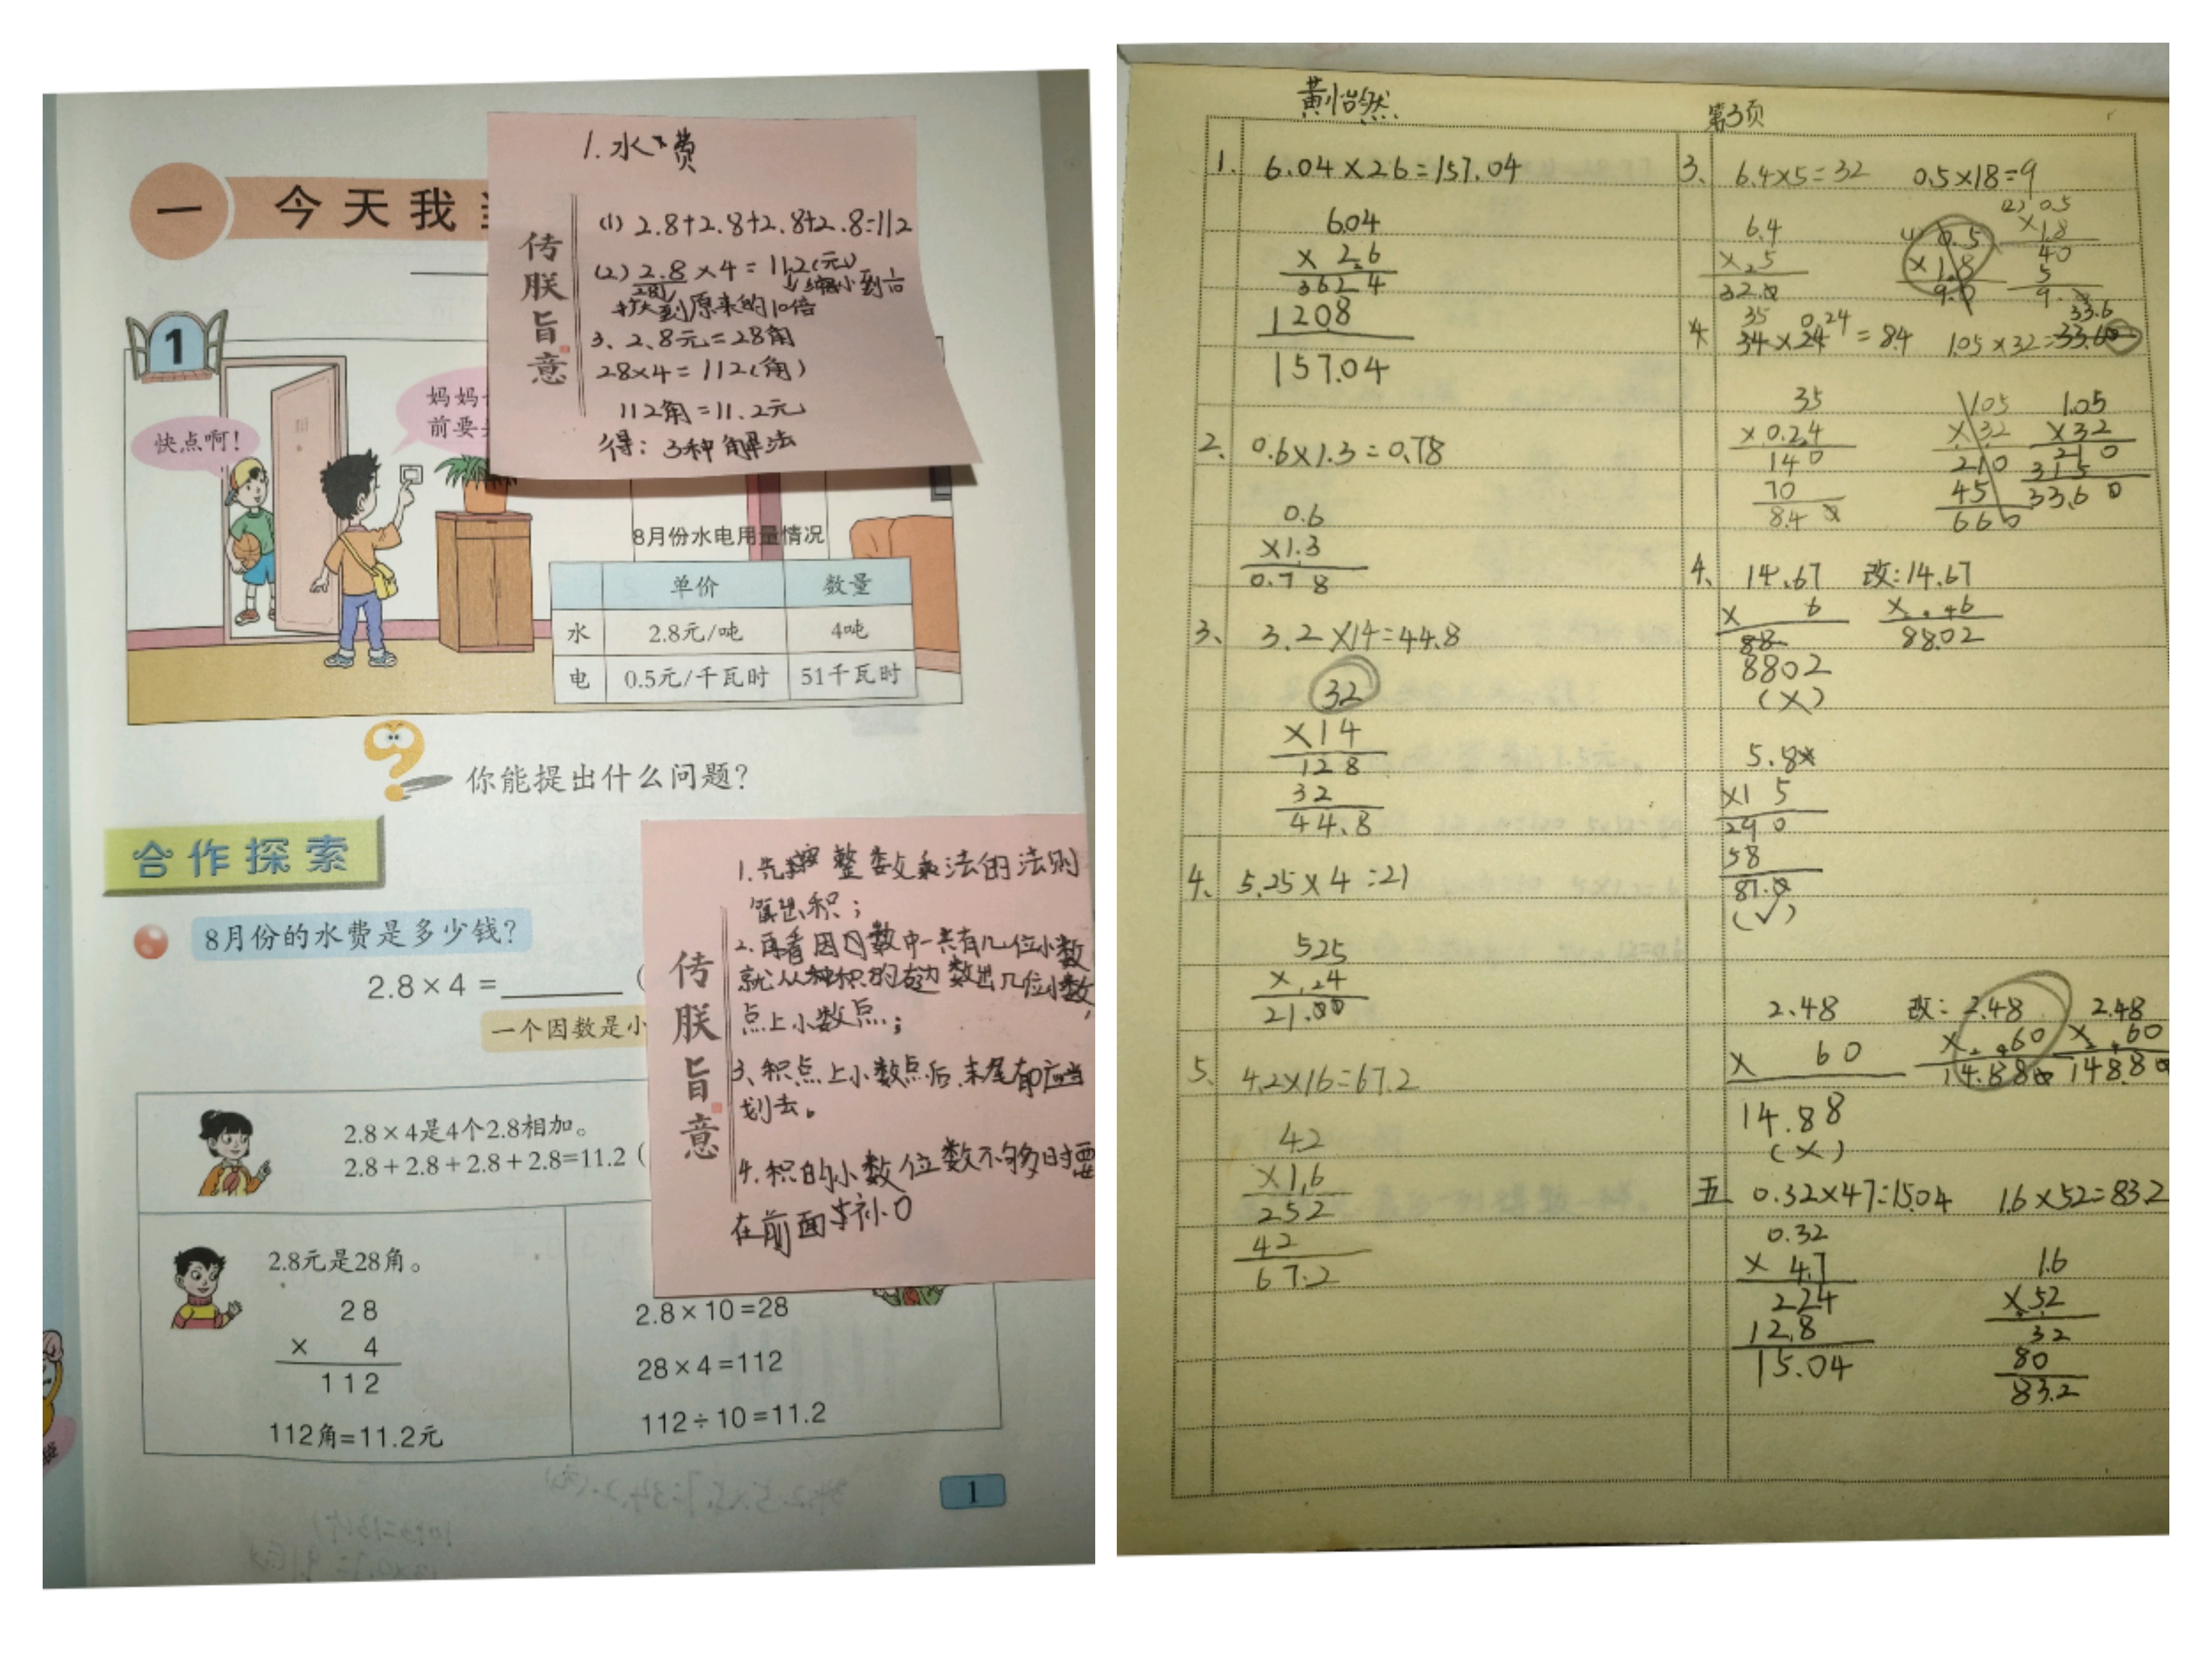 一 今天我
1
快点啊！
妈妈
前要
1.水费
传朕旨意
(1) 2.8+2.8+2.8+2.8=112
(2) 2.8×4=11.2(元)
281 缩小到1/10
扩大到原来的10倍
3、2.8元=28角
28×4=112(角)
112角=11.2元
得：3种解法
8月份水电用量情况
单价 数量
水 2.8元/吨 4吨
电 0.5元/千瓦时 51千瓦时
你能提出什么问题？
合作探索
8月份的水费是多少钱？
2.8×4=______（
一个因数是小
传朕旨意
1.先按整数乘法的法则
算出积；
2.再看因数中一共有几位小数
就从积的右边数出几位小数,
点上小数点；
3、积点上小数点后,末尾有0应当
划去。
4.积的小数位数不够时要
在前面补0
2.8×4是4个2.8相加。
2.8+2.8+2.8+2.8=11.2（
2.8元是28角。
28
× 4
112
112角=11.2元
2.8×10=28
28×4=112
112÷10=11.2
1
黄怡然
第3页
1. 6.04×26=157.04
6.04
× 2.6
3624
1208
157.04
2、 0.6×1.3=0.78
0.6
×1.3
0.78
3、 3.2×14=44.8
32
×14
128
32
44.8
4、 5.25×4=21
525
×.24
21.00
5、 4.2×16=67.2
42
×1.6
252
42
67.2
3、 6.4×5=32 0.5×18=9
6.4
×.5
32.0
(1) 0.5
×1.8
9.0
(2) 0.5
×1.8
40
5
9.0
35 0.24 33.6
4 34×24=84 105×32=33.60
35
×0.24
140
70
84 0
105
×32
210
45
660
1.05
×32
210
315
33.60
4、 14.67 改:14.67
× 6 × 6
88 88.02
8802
(×)
5.8
×15
290
58
87.0
(✓)
2.48 改: 2.48 2.48
× 60 × 60 × 60
14.88 14.880 148.80
(×)
五 0.32×47=15.04 1.6×52=83.2
0.32
× 47
224
12.8
15.04
1.6
×52
32
80
83.2